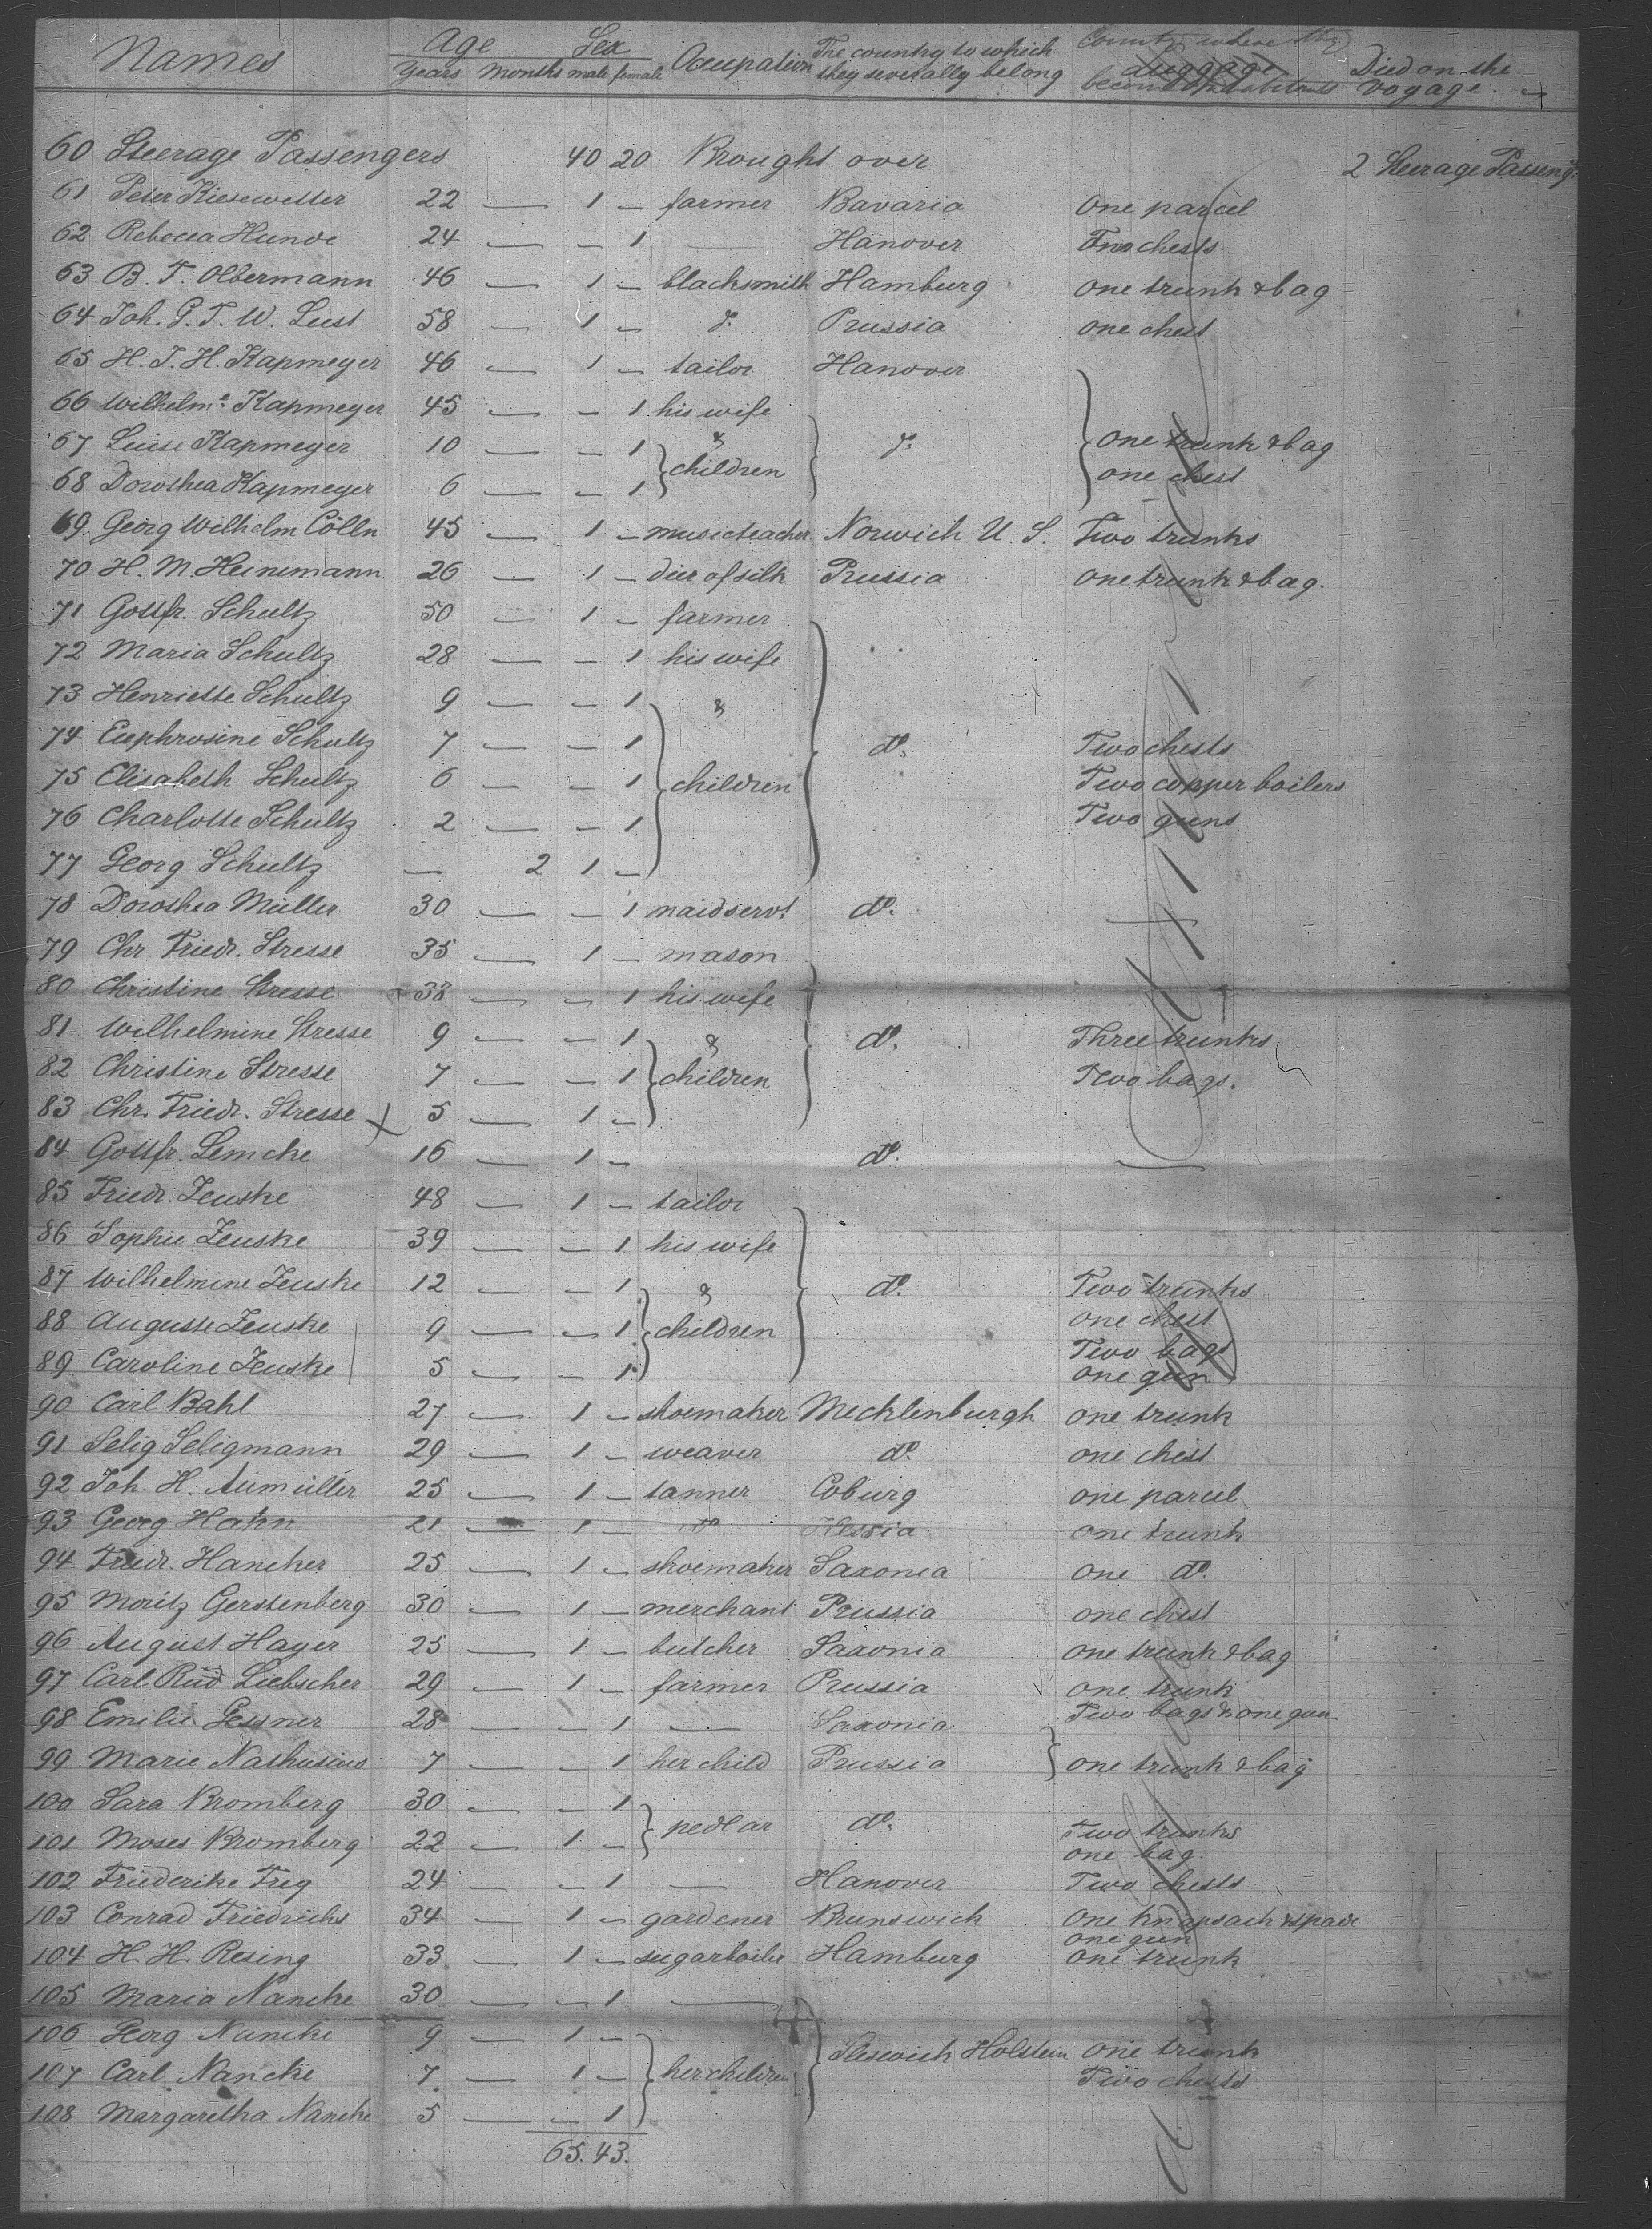 Names Age Sex Occupation The country to which Country where they Died on the
Years Months male female they severally belong luggage become inhabitants voyage.
60 Steerage Passengers 40 20 Brought over 2 Steerage Passeng.
61 Peter Kiesewetter 22 — 1 — farmer Bavaria One parcel
62 Rebecca Hunde 24 — — 1 — Hanover Two chests
63 B. F. Olbermann 46 — 1 — blacksmith Hamburg one trunk & bag
64 Joh. G. F. W. Lust 58 — 1 — d°. Prussia one chest
65 H. J. H. Kapmeyer 46 — 1 — tailor Hanover
66 Wilhelm.e Kapmeyer 45 — — 1 his wife
67 Luise Kapmeyer 10 — — 1 & d°. one trunk & bag
68 Dorothea Kapmeyer 6 — — 1 children one chest
69 Georg Wilhelm Cölln 45 — 1 — musicteacher Norwich U. S. Two trunks
70 H. M. Heinemann 26 — 1 — dier of silk Prussia one trunk & bag.
71 Gottfr. Schultz 50 — 1 — farmer
72 Maria Schultz 28 — — 1 his wife
73 Henriette Schultz 9 — — 1 &
74 Euphrosine Schultz 7 — — 1 d°. Two chests
75 Elisabeth Schultz 6 — — 1 children Two copper boilers
76 Charlotte Schultz 2 — — 1 Two guns
77 Georg Schultz — 2 1 —
78 Dorothea Müller 30 — — 1 maidservt d°.
79 Chr Friedr. Stresse 35 — 1 — mason
80 Christine Stresse 38 — — 1 his wife
81 Wilhelmine Stresse 9 — — 1 & d°. Three trunks
82 Christine Stresse 7 — — 1 children Two bags.
83 Chr. Friedr. Stresse 5 — 1 —
84 Gottfr. Lemcke 16 — 1 — d°. —
85 Friedr. Zeuske 48 — 1 — tailor
86 Sophie Zeuske 39 — — 1 his wife
87 Wilhelmine Zeuske 12 — — 1 & d°. Two trunks
88 Auguste Zeuske 9 — — 1 children one chest
Two bags
89 Caroline Zeuske 5 — — 1 one gun
90 Carl Bahl 27 — 1 — shoemaker Mecklenburgh one trunk
91 Selig Seligmann 29 — 1 — weaver d°. one chest
92 Joh. H. Aumüller 25 — 1 — tanner Coburg one parcel
93 Georg Hahn 21 — 1 — d° Hessia one trunk
94 Friedr. Hancker 25 — 1 — shoemaker Saxonia one d°.
95 Moritz Gerstenberg 30 — 1 — merchant Prussia one chest
96 August Hayer 25 — 1 — butcher Saxonia one trunk & bag
97 Carl Rud Liebscher 29 — 1 — farmer Prussia one trunk
Two bags & one gun
98 Emilie Gessner 28 — — 1 — Saxonia
99 Marie Nathusius 7 — — 1 her child Prussia one trunk & bag
100 Sara Bromberg 30 — — 1
101 Moses Bromberg 22 — 1 — pedlar d°. Two trunks
one bag.
102 Friederike Frey 24 — — 1 — Hanover Two chests
103 Conrad Friedrichs 34 — 1 — gardener Brunswick One knapsack & spade
one gun
104 H. H. Resing 33 — 1 — sugarboiler Hamburg one trunk
105 Maria Nancke 30 — — 1 —
106 Georg Nancke 9 — 1 — Sleswick Holstein one trunk
107 Carl Nancke 7 — 1 — her children Two chests
108 Margaretha Nancke 5 — — 1
65. 43.